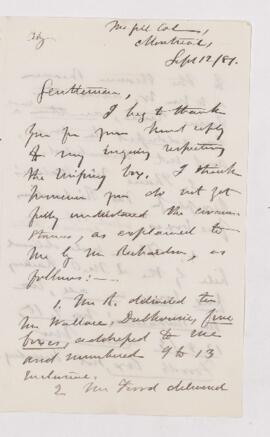 McGill Col,
Montreal,
Sept 12/81.
Gentlemen,
I beg to thank
you for your kind reply
to my inquiry respecting
the missing box. I think
however you do not yet
fully understand the circum
stances, as explained to
me by Mr Richardson, as
follows:—
1. Mr R. delivered to
Mr Wallace, Dalhousie, five
boxes, addressed to me
and numbered 9 to 13
inclusive.
2 Mr delivered